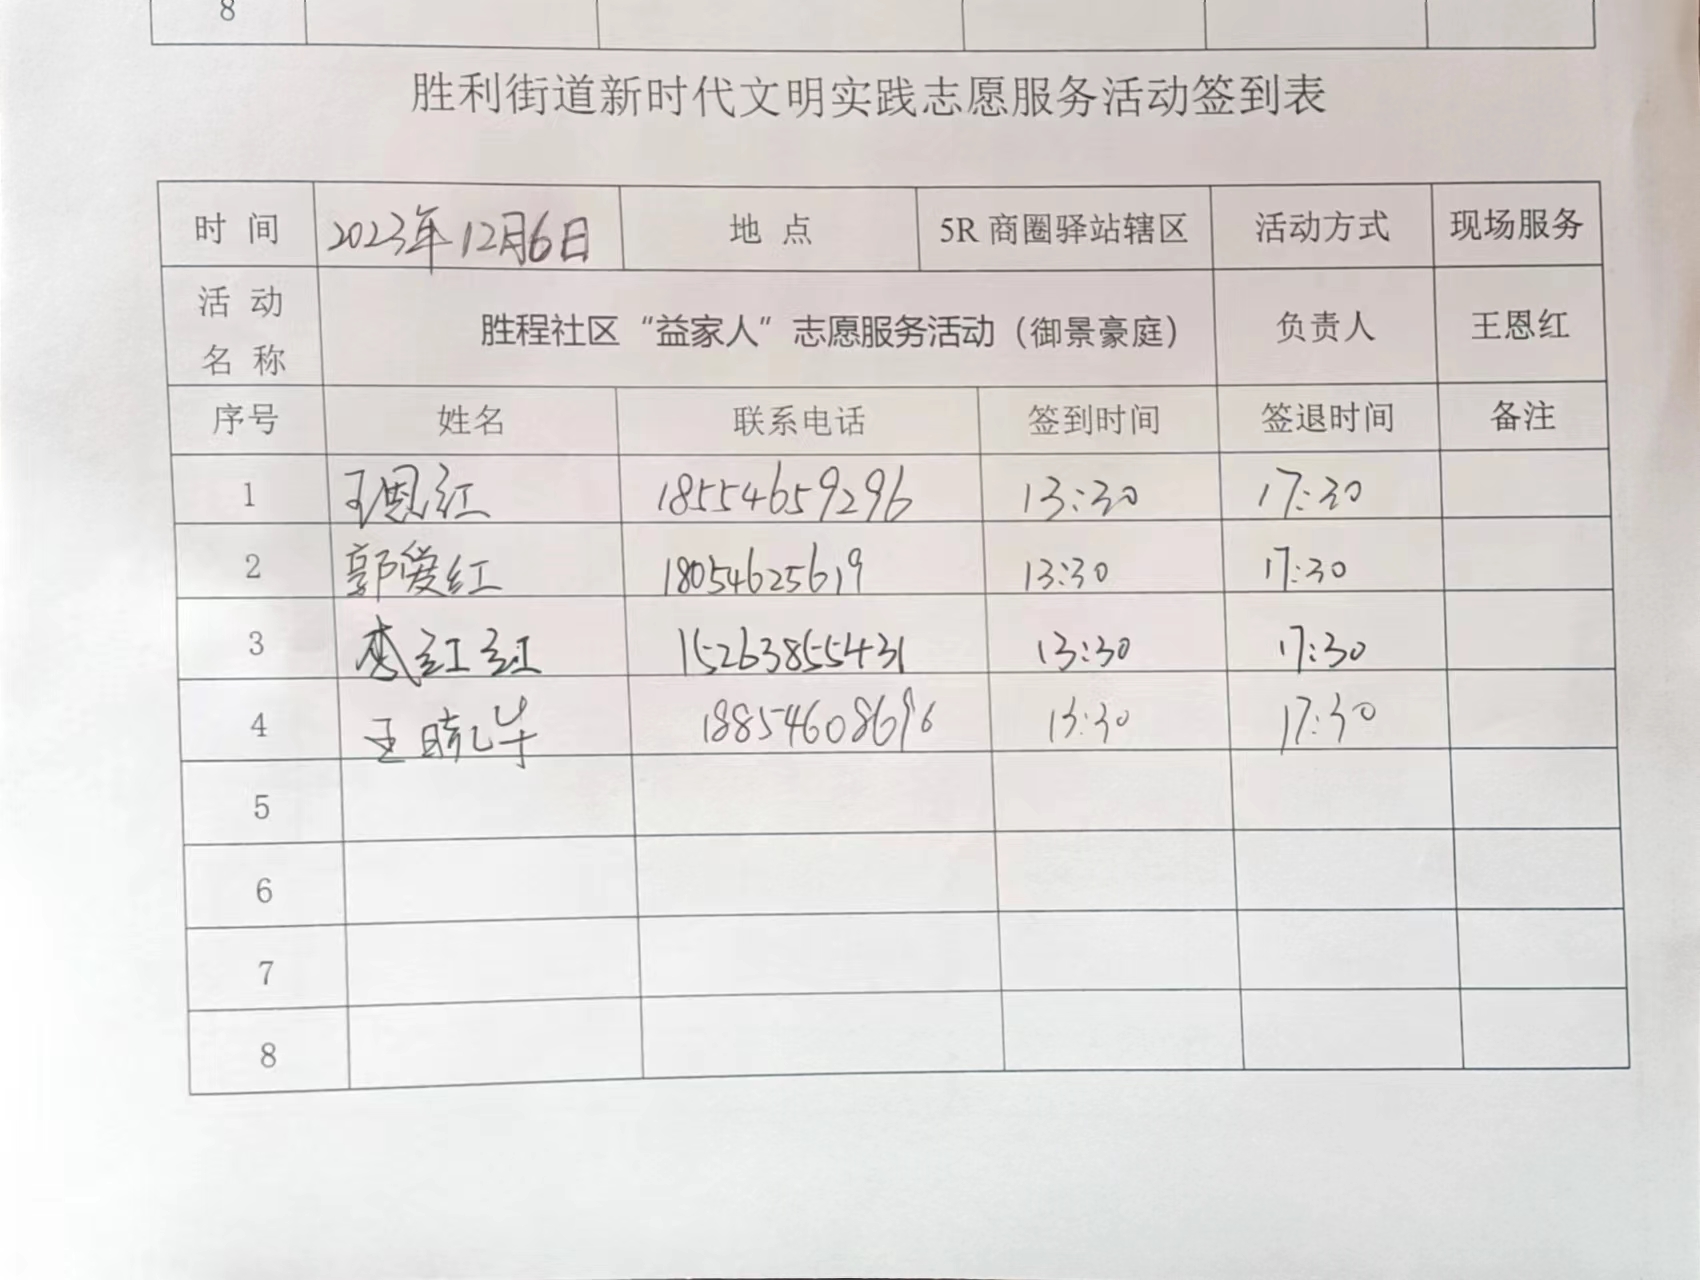 8
胜利街道新时代文明实践志愿服务活动签到表
时 间 2023年12月6日 地 点 5R 商圈驿站辖区 活动方式 现场服务
活 动 名 称 胜程社区“益家人”志愿服务活动（御景豪庭） 负责人 王恩红
序号 姓名 联系电话 签到时间 签退时间 备注
1 王恩红 18554659296 13:30 17:30
2 郭爱红 18054625619 13:30 17:30
3 李红红 15263855431 13:30 17:30
4 王晓华 18854608696 13:30 17:30
5
6
7
8